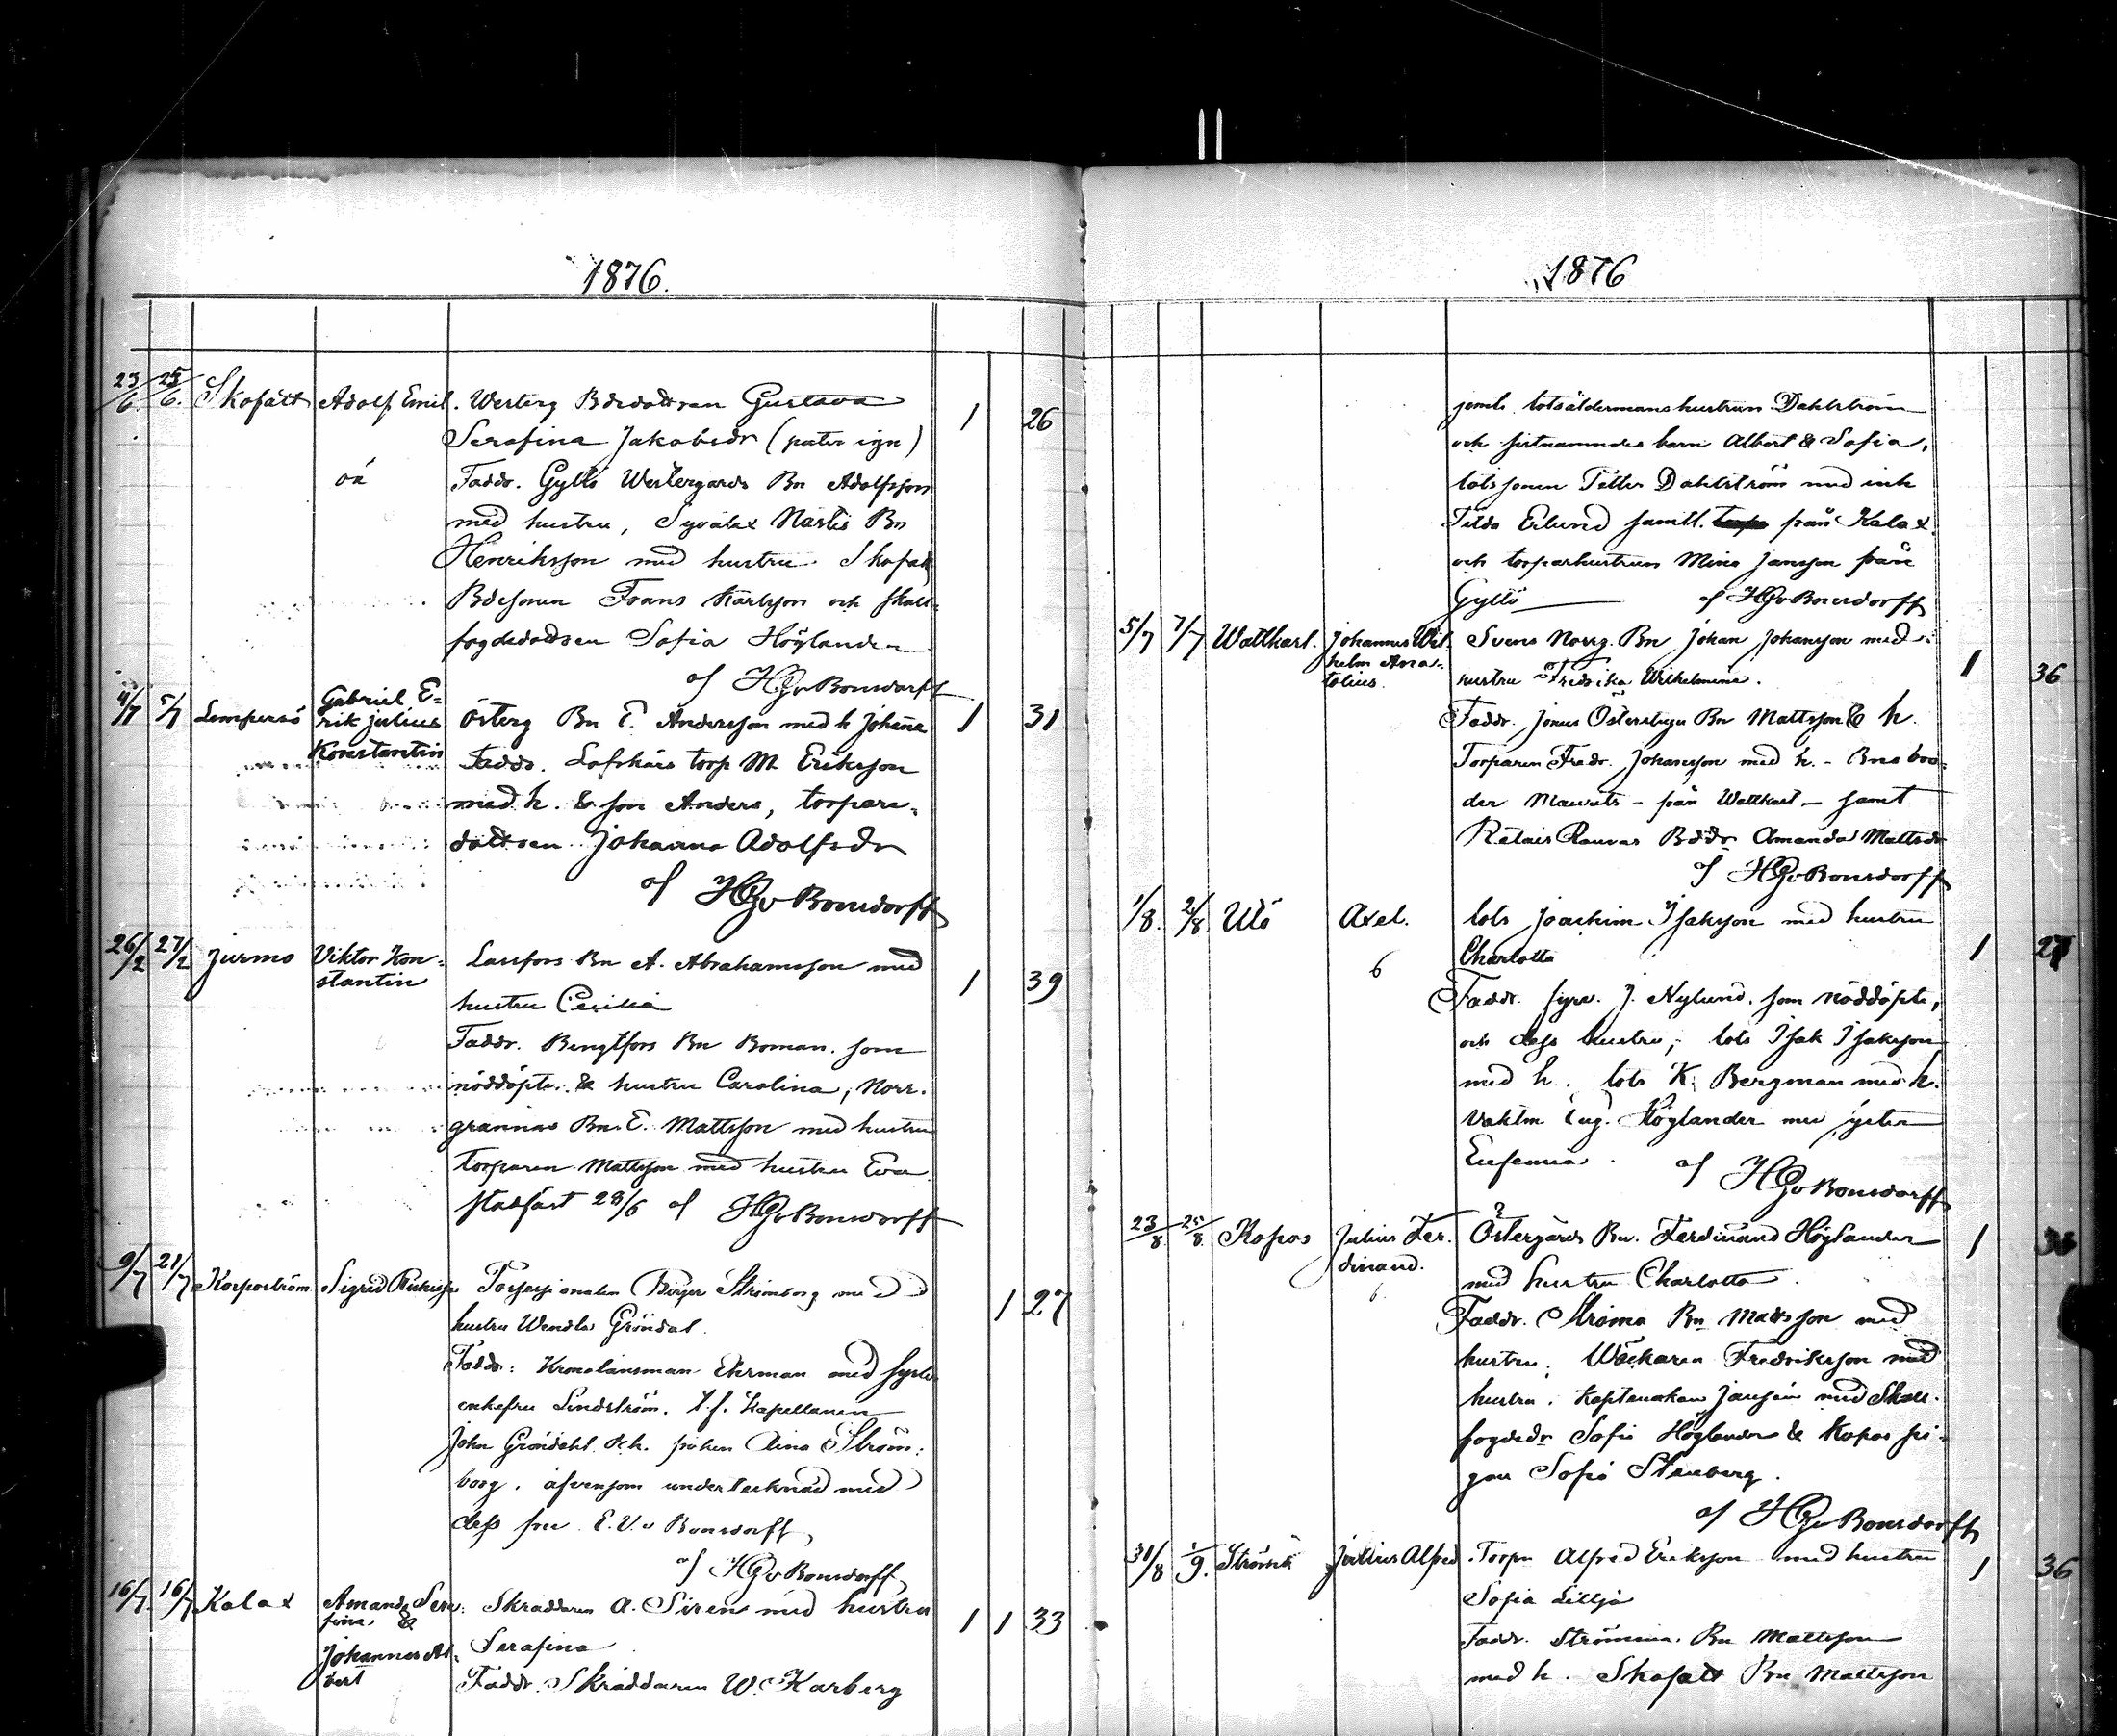 1876.
23/6. 25/6. Skofätt Adolf Emil. Westerg Bdrdottren Gustava 1 26
Serafina Jakobsdr (pater ign)
oä Faddr. Gyltö Westergårds Bn Adolfsson
med hustru, Syvälax Bn
Henriksson med hustru Skofätt
Bdesonen Frans Karlsson och skall-
fogdedottren Sofia Höglander
af HGvBonsdorff
4/7 5/7 Lempersö Gabriel E-
rik Julius Österg Bn E. Andersson med h Johana 1 31
Konstantin Faddr. Lofskärs torp M Eriksson
med h. & son Anders, torpare-
dottren Johanna Adolfsdr
af HGvBonsdorff
26/2 27/2 Jurmo Viktor Kon- Lassfors Bn A. Abrahamsson med 1 39
stantin hustru Cecilia
Faddr. Bengtfors Bn Boman. som
nöddöpte. & hustru Carolina, Norr-
grannas Bn E. Mattsson med hustru
Torparen Mattsson med hustru Eva
stadfäst 28/6 af HGvBonsdorff
9/7 21/7 Korpoström Sigrid Possessionaten Birger Strömborg med 1 27
hustru Wendla Gröndal.
Faddr: Kronolänsman Ekrman med syst.
enkefru Lindström. t.f. Kapellanen
John Gröndahl och fröken Aina Ström-
borg. äfvensom undertecknad med
dess fru E. V. v Bonsdorff
af HGvBonsdorff
16/7. 16/7 Kalax Amanda Sera- Skräddaren A. Siren med hustru 1 1 33
fina &
Johannes Al- Serafina
bert Faddr. Skräddaren W. Karberg
1876
jemte lotsåldermanshustrun Dahlström
och sistnämndes barn Albert & Sofia,
lotssonen Dahlström med
Eklund samtl. från Kalax
och torparhustrun Mina Jansson från
Gyltö af HGvBonsdorff
5/7 7/7 Wattkast. Johannes Wil- Svens Norrg. Bn Johan Johansson med
helm Ana- hustru Fredrika Wilhelmina. 1 36
tolius.
Faddr. Jonus Österstuga Bn Mattsson & h.
Torparen Fredr. Johansson med h. - Bns bro-
der Maurits - från Wattkast - samt
Retais Rauvas Bddr Amanda Mattsdr
af HGvBonsdorff
1/8. 2/8 Utö Axel. lots Joachim Isaksson med hustru
Charlotta 1 27
6
Faddr. fyrv. J. Nylund, som nöddöpte,
och dess hustru, lots Isak Isaksson
med h. lots K. Bergman med h.
Vaktm Eug. Höglander med syster
Eufemia. af HGvBonsdorff
23/8. 25/8. Kopos Julius Fer- Östergårds Bn. Ferdinand Höglander 1 36
dinand. med hustru Charlotta.
Faddr. Ströma Bn Mattsson med
hustru. Fredriksson med
hustru. Kaptenskan Jansén med Skall-
fogdedr Sofi Höglander & Kopos pi-
gan Sofia Stenberg.
af HGvBonsdorff
31/8 1/9. Julius Alfred Torpn Alfred Eriksson med hustru 1 36
Sofia Lilljä
Faddr. Strömma. Bn Mattsson
med h. Skofätt Bn Mattsson